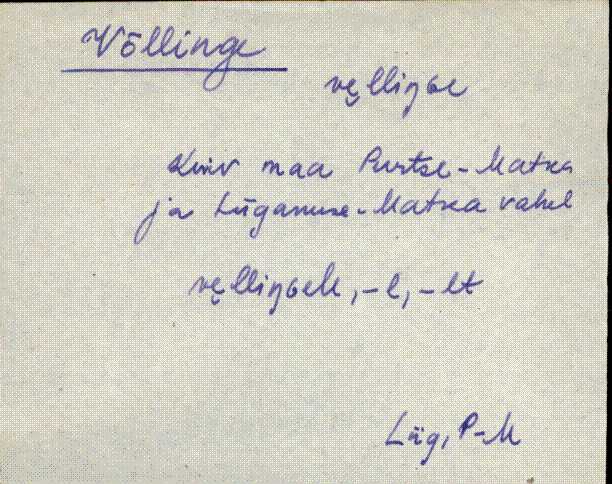 Võllinge
vęlliŋGe
Kuiv maa Purtse-Matka
ja Lüganuse-Matka vahel
vęlliŋGelt, -l, -lt
Lüg, P-M